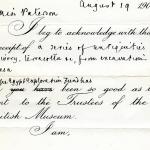 August 19 190
Miss Paterson
I beg to acknowledge with than
receipt of a series of antiquities
ivory, terracotta &c, from excavation
Egypt Exploration Fund has
h you have been so good as t
nt to the Trustees of the
itish Museum.
I am,